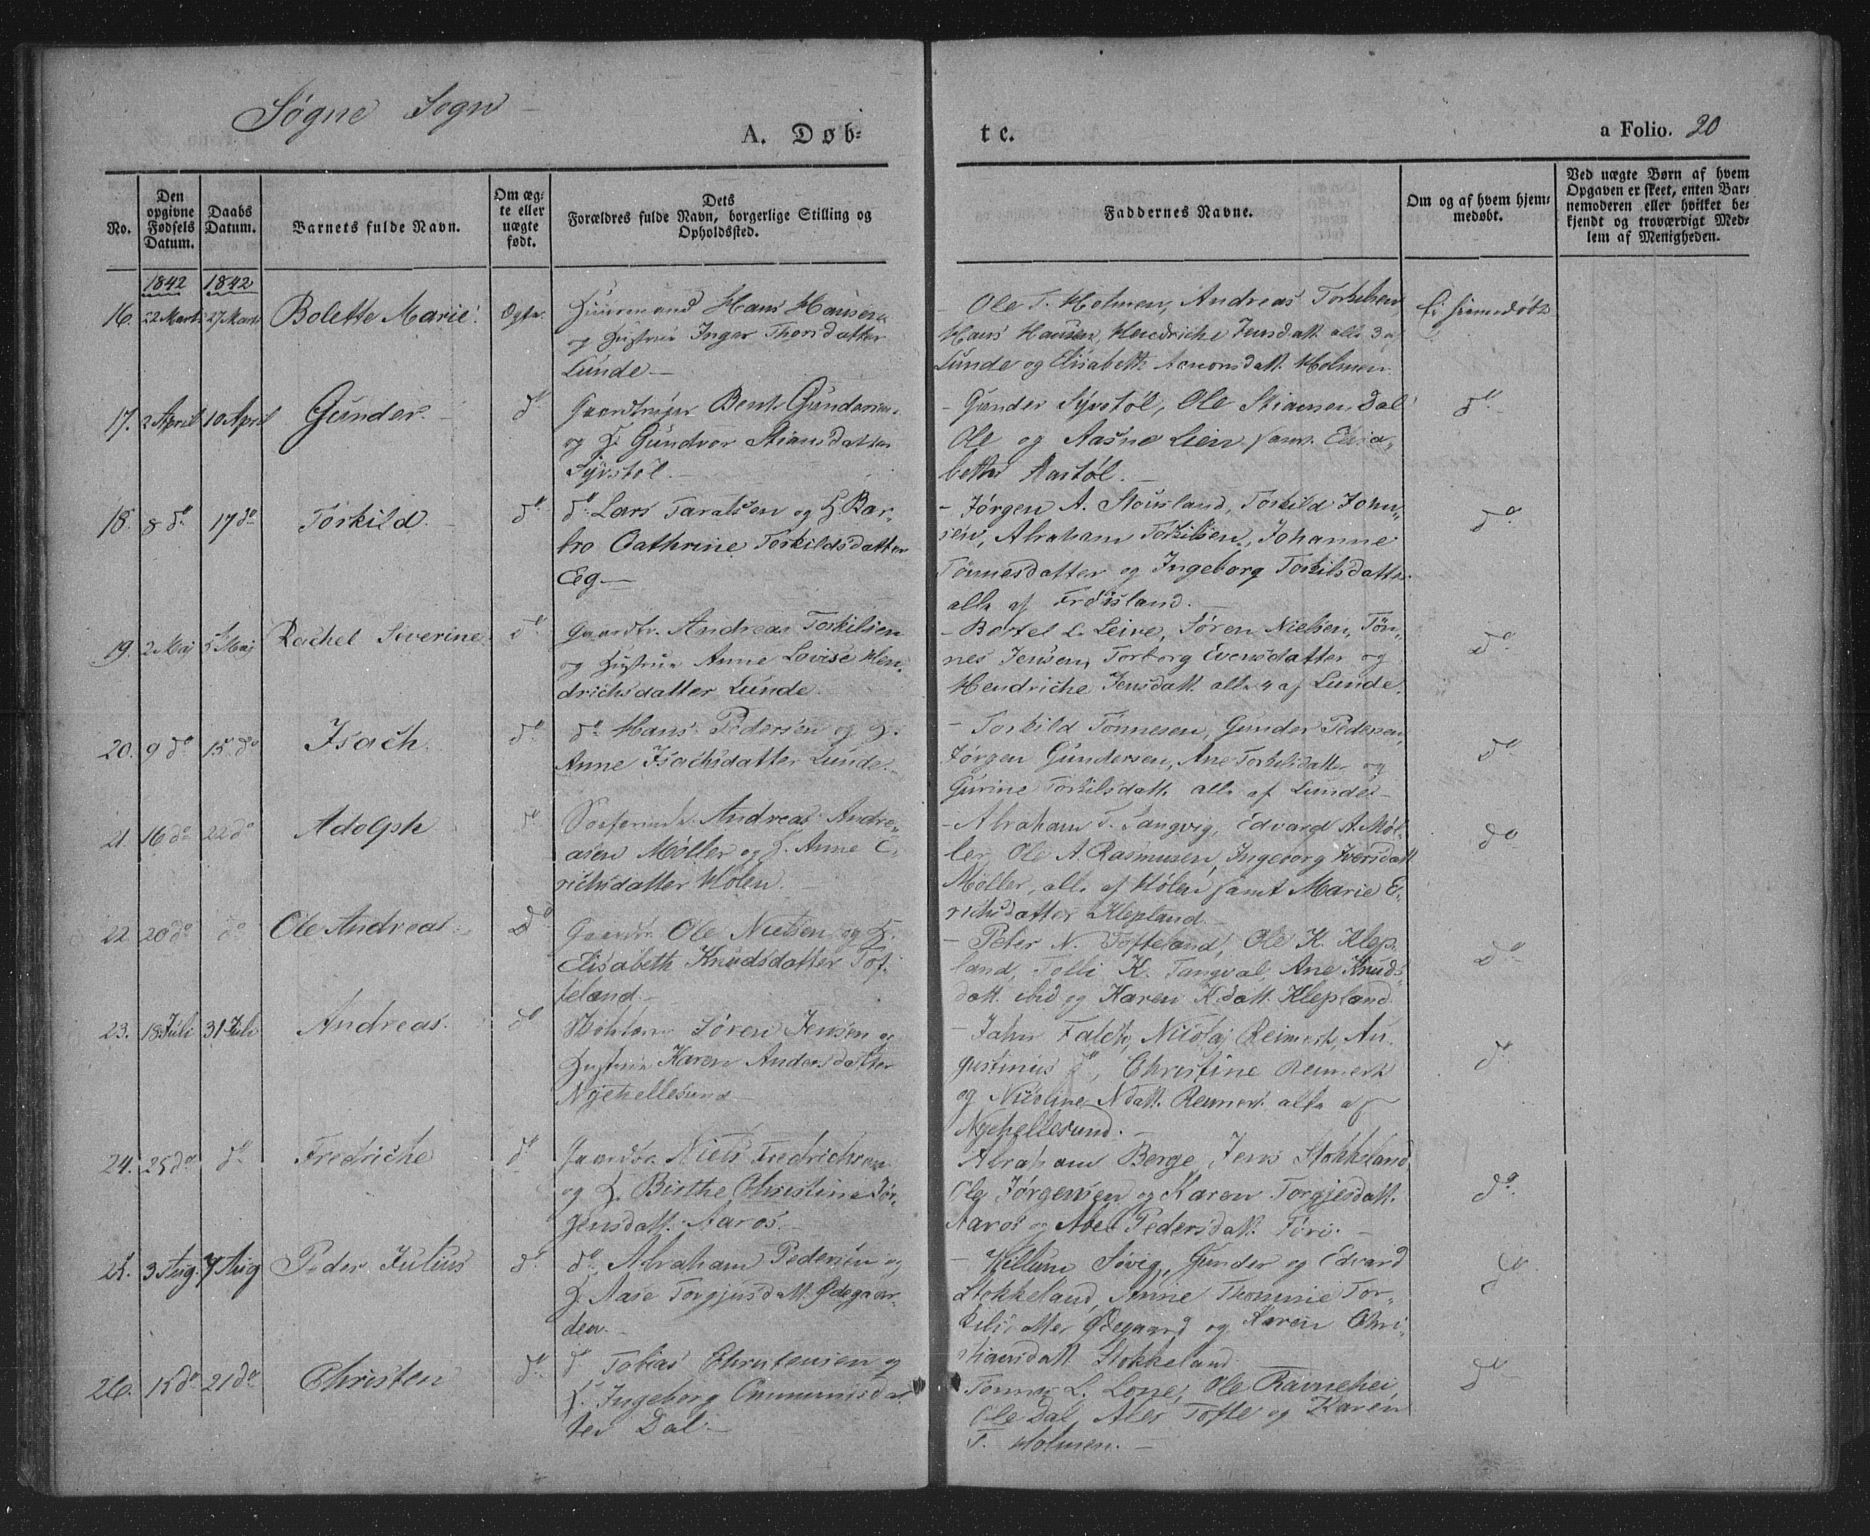 Søgne Sogn
A. Døb-
te.
a Folio. 20
No.
Den opgivne Fødsels Datum.
Daabs Datum.
Barnets fulde Navn.
Om ægte eller uægte født.
Dets Forældres fulde Navn, borgerlige Stilling og Opholdssted.
Faddernes Navne.
Om og af hvem hjemmedøbt.
Ved uægte Børn af hvem Opgaven er skeet, enten Barnemoderen eller hvilket bekjendt og troværdigt Medlem af Menigheden.
1842 1842
16. 22 Marts 27 Marts Bolette Marie. Ægte. Huusmand Hans Hansen
og Hustrue Inger Thorsdatter
Lunde.
Ole T. Holmen, Andreas Torkilsen,
Hans Hansen, Hendriche Jensdatt. alle 3 af
Lunde og Elisabeth Aanonsdatt. Holmen
Ei hjemmedøbt
17. 2 April 10 April Gunder. do Gaardbruger Bent Gundersen
og H. Gundvor Stiansdatter
Syvstøl.
- Gunder Syvstøl, Ole Stiansen Dal
Ole og Aasne Lien samt Elisa-
beth Aastøl.
do
18. 8 do 17 do Torkild. do do Lars Taraldsen og H. Bar-
bro Cathrine Torkildsdatter
Eg
- Jørgen A. Stousland, Torkild John-
sen, Abraham Torkilsen, Johanne
Tønnesdatter og Ingeborg Torkilsdatter
alle af Frøisland.
do
19. 2 Maj 5 Maj Rachel Severine do Gaardbr. Andreas Torkilsen
og Hustrue Anne Lovise Hen-
drichsdatter Lunde.
- Bertel L. Leire, Søren Nielsen, Tøn-
nes Jensen, Torborg Evensdatter og
Hendriche Jensdatt. alle 4 af Lunde.
do
20. 9 do 15 do Isach. do do Hans Pedersen og H.
Anne Isachsdatter Lunde.
- Torkild Tønnesen, Gunder Pedersen,
Jørgen Gundersen, Ane Torkilsdatter og
Gurine Torkilsdatt. alle af Lunde
do
21. 16 do 22 do Adolph do Andreas Andre-
asen Møller og H. Anne E-
richsdatter Holen.
- Abraham T. Tangvig, Edvard A. Møl-
ler, Ole A. Rasmusen, Ingeborg Iversdatt.
Møller, alle af Hølen samt Marie E-
richsdatter Klepland
do
22. 20 do do Ole Andreas do Gaardbr. Ole Nielsen og H.
Elisabeth Knudsdatter Tof-
teland
- Peter N. Tofteland, Ole K. Klep-
land, Tolli K. Tangval, Ane Knuds-
datt. ibid og Karen K.datt. Klepland
do
23. 18 Juli 31 Juli Andreas. do Søren Jensen og
Hustrue Karen Andersdatter
Nyehellesund
- Jahn Falch, Nicolaj Reimert, Au-
gustinus do, Christine Reimert
og Nicoline N.datt. Reimert alle af
Nyehellesund.
do
24. 25 do do Fredriche do Gaardbr. Niels Fredrichsen
og H. Birthe Christine Jør-
gensdatt. Aaros.
Abraham Berge, Jens Stokkeland
Ole Jørgensen og Karen Torgjesdatt.
Aaros og Abel Pedersdatt. Torø.
do
25. 3 Aug 7 Aug Peder Julius do do Abraham Pedersen og
H. Aase Torgjusdatt. Ødegaar-
den.
- Søvig, Gunder og Edvard
Stokkeland, Anne Thomine Tor-
kilsdatter Ødegaard og Karen Chri-
stiansdatt. Stokkeland.
do
26. 15 do 21 do Christen do do Tobias Christensen og
H. Ingeborg Ommundsdat-
ter Dal.
Tønnes L. Lone, Ole Ravnehei,
Ole Dal, Ales Tofte og Karen
T. Holmen.
do